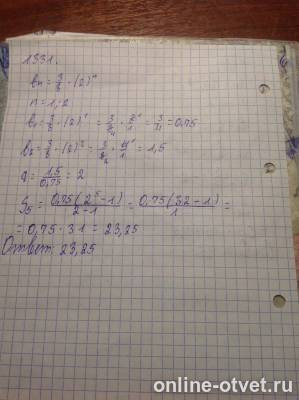 1331.
bₙ = 3/8 · (2)ⁿ
n = 1; 2
b₁ = 3/8 · (2)¹ = 3/8 · 2/1 = 3/4 = 0,75
b₂ = 3/8 · (2)² = 3/8 · 4/1 = 1,5
q = 1,5/0,75 = 2
S₅ = 0,75(2⁵-1)/2-1 = 0,75(32-1)/1 =
= 0,75 · 31 = 23,25
Ответ: 23,25
online-otvet.ru